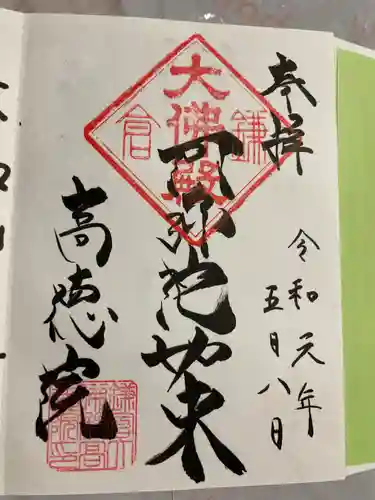 奉拝
令和元年
五月八日
大佛殿
鎌倉
阿弥陀如来
高徳院